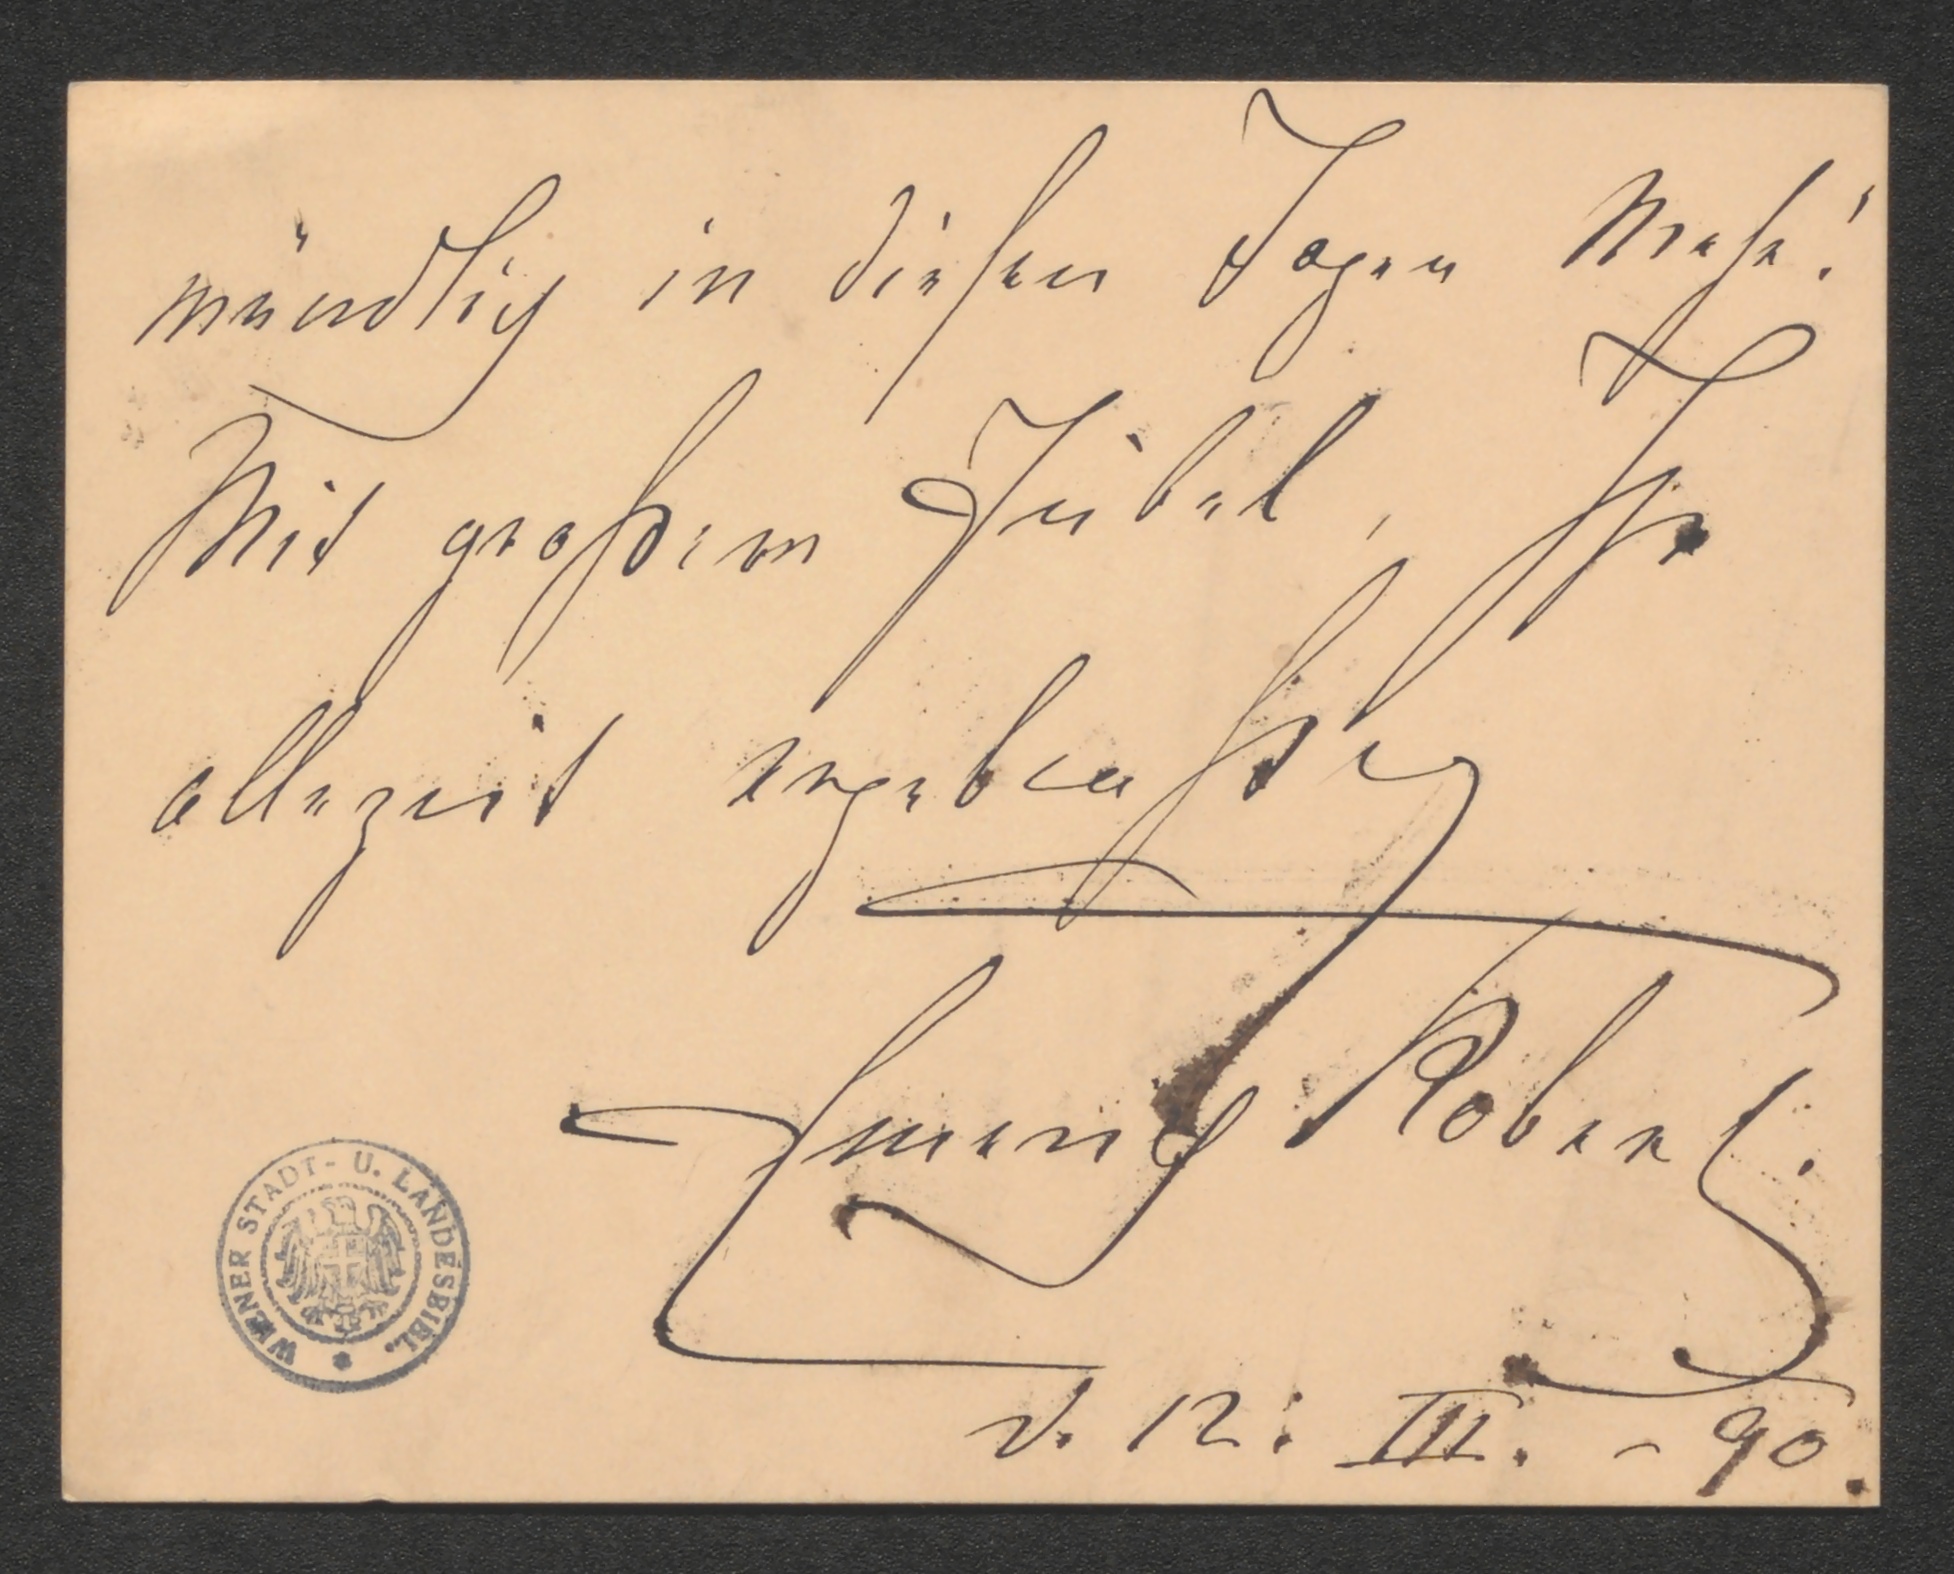 mündlich in diesen Tagen Mehr!
Mit großem Jubel, Ihr
allezeit ergebenster
Emerich Robert.
d. 12. III. - 90.
WIENER STADT- U. LANDESBIBL.